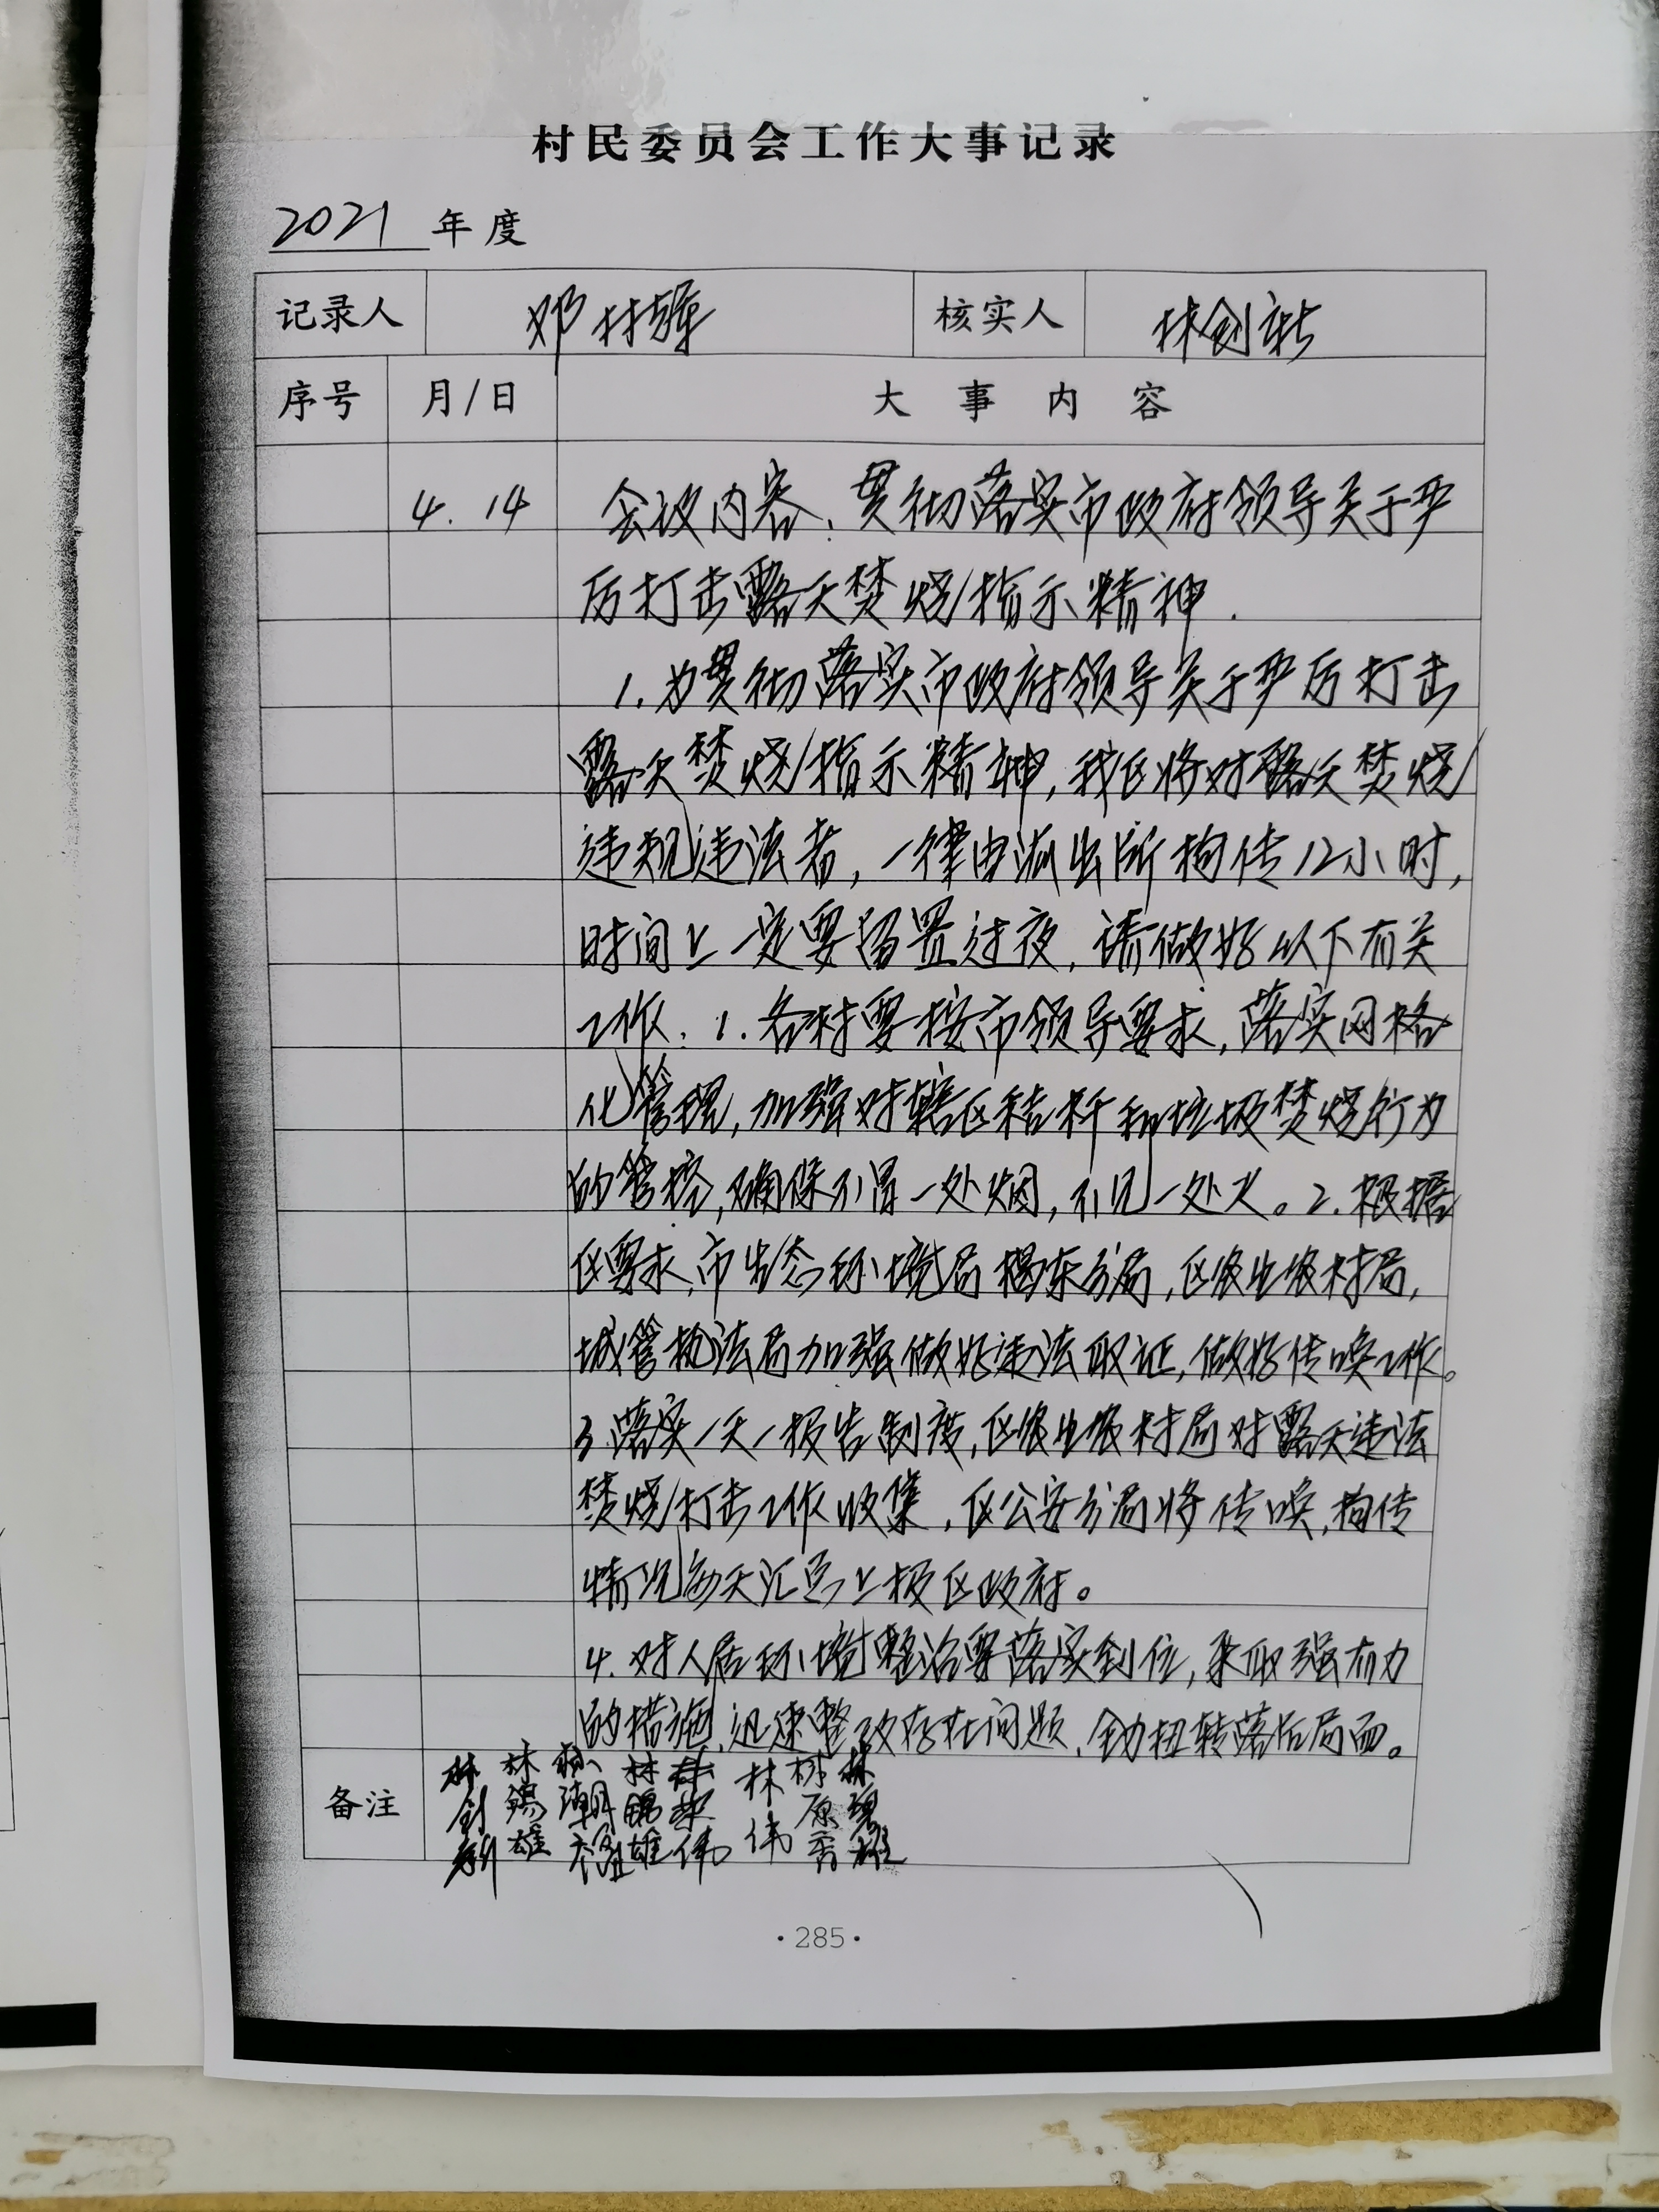 村民委员会工作大事记录
2021 年度
记录人 邓林雄 核实人 林创新
序号 月/日 大事内容
4.14 会议内容:贯彻落实市政府领导关于严
厉打击露天焚烧指示精神.
1.为贯彻落实市政府领导关于严厉打击
露天焚烧指示精神,我区将对露天焚烧
违规违法者,一律由派出所拘传12小时,
时间上一定要留置过夜,请做好以下有关
工作:1.各村要按市领导要求,落实网格
化管理,加强对辖区秸秆和垃圾焚烧行为
的管控,确保不冒一处烟,不见一处火。2.根据
区要求,市生态环境局揭东分局,区农业农村局,
城管执法局加强做好违法取证,做好传唤工作。
3.落实一天一报告制度,区农业农村局对露天违法
焚烧打击工作收集,区公安分局将传唤,拘传
情况每天汇总上报区政府。
4.对人居环境整治要落实到位,采取强有力
的措施,迅速整改存在问题,全力扭转落后局面。
备注 林创新 林锡雄 林潮 林锦雄 林 伟 林伟 林 林
·285·